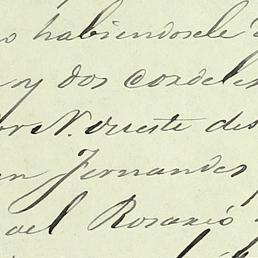 habiendosele
y dos cordeles
N. oueste des
Fernandes
Rosario